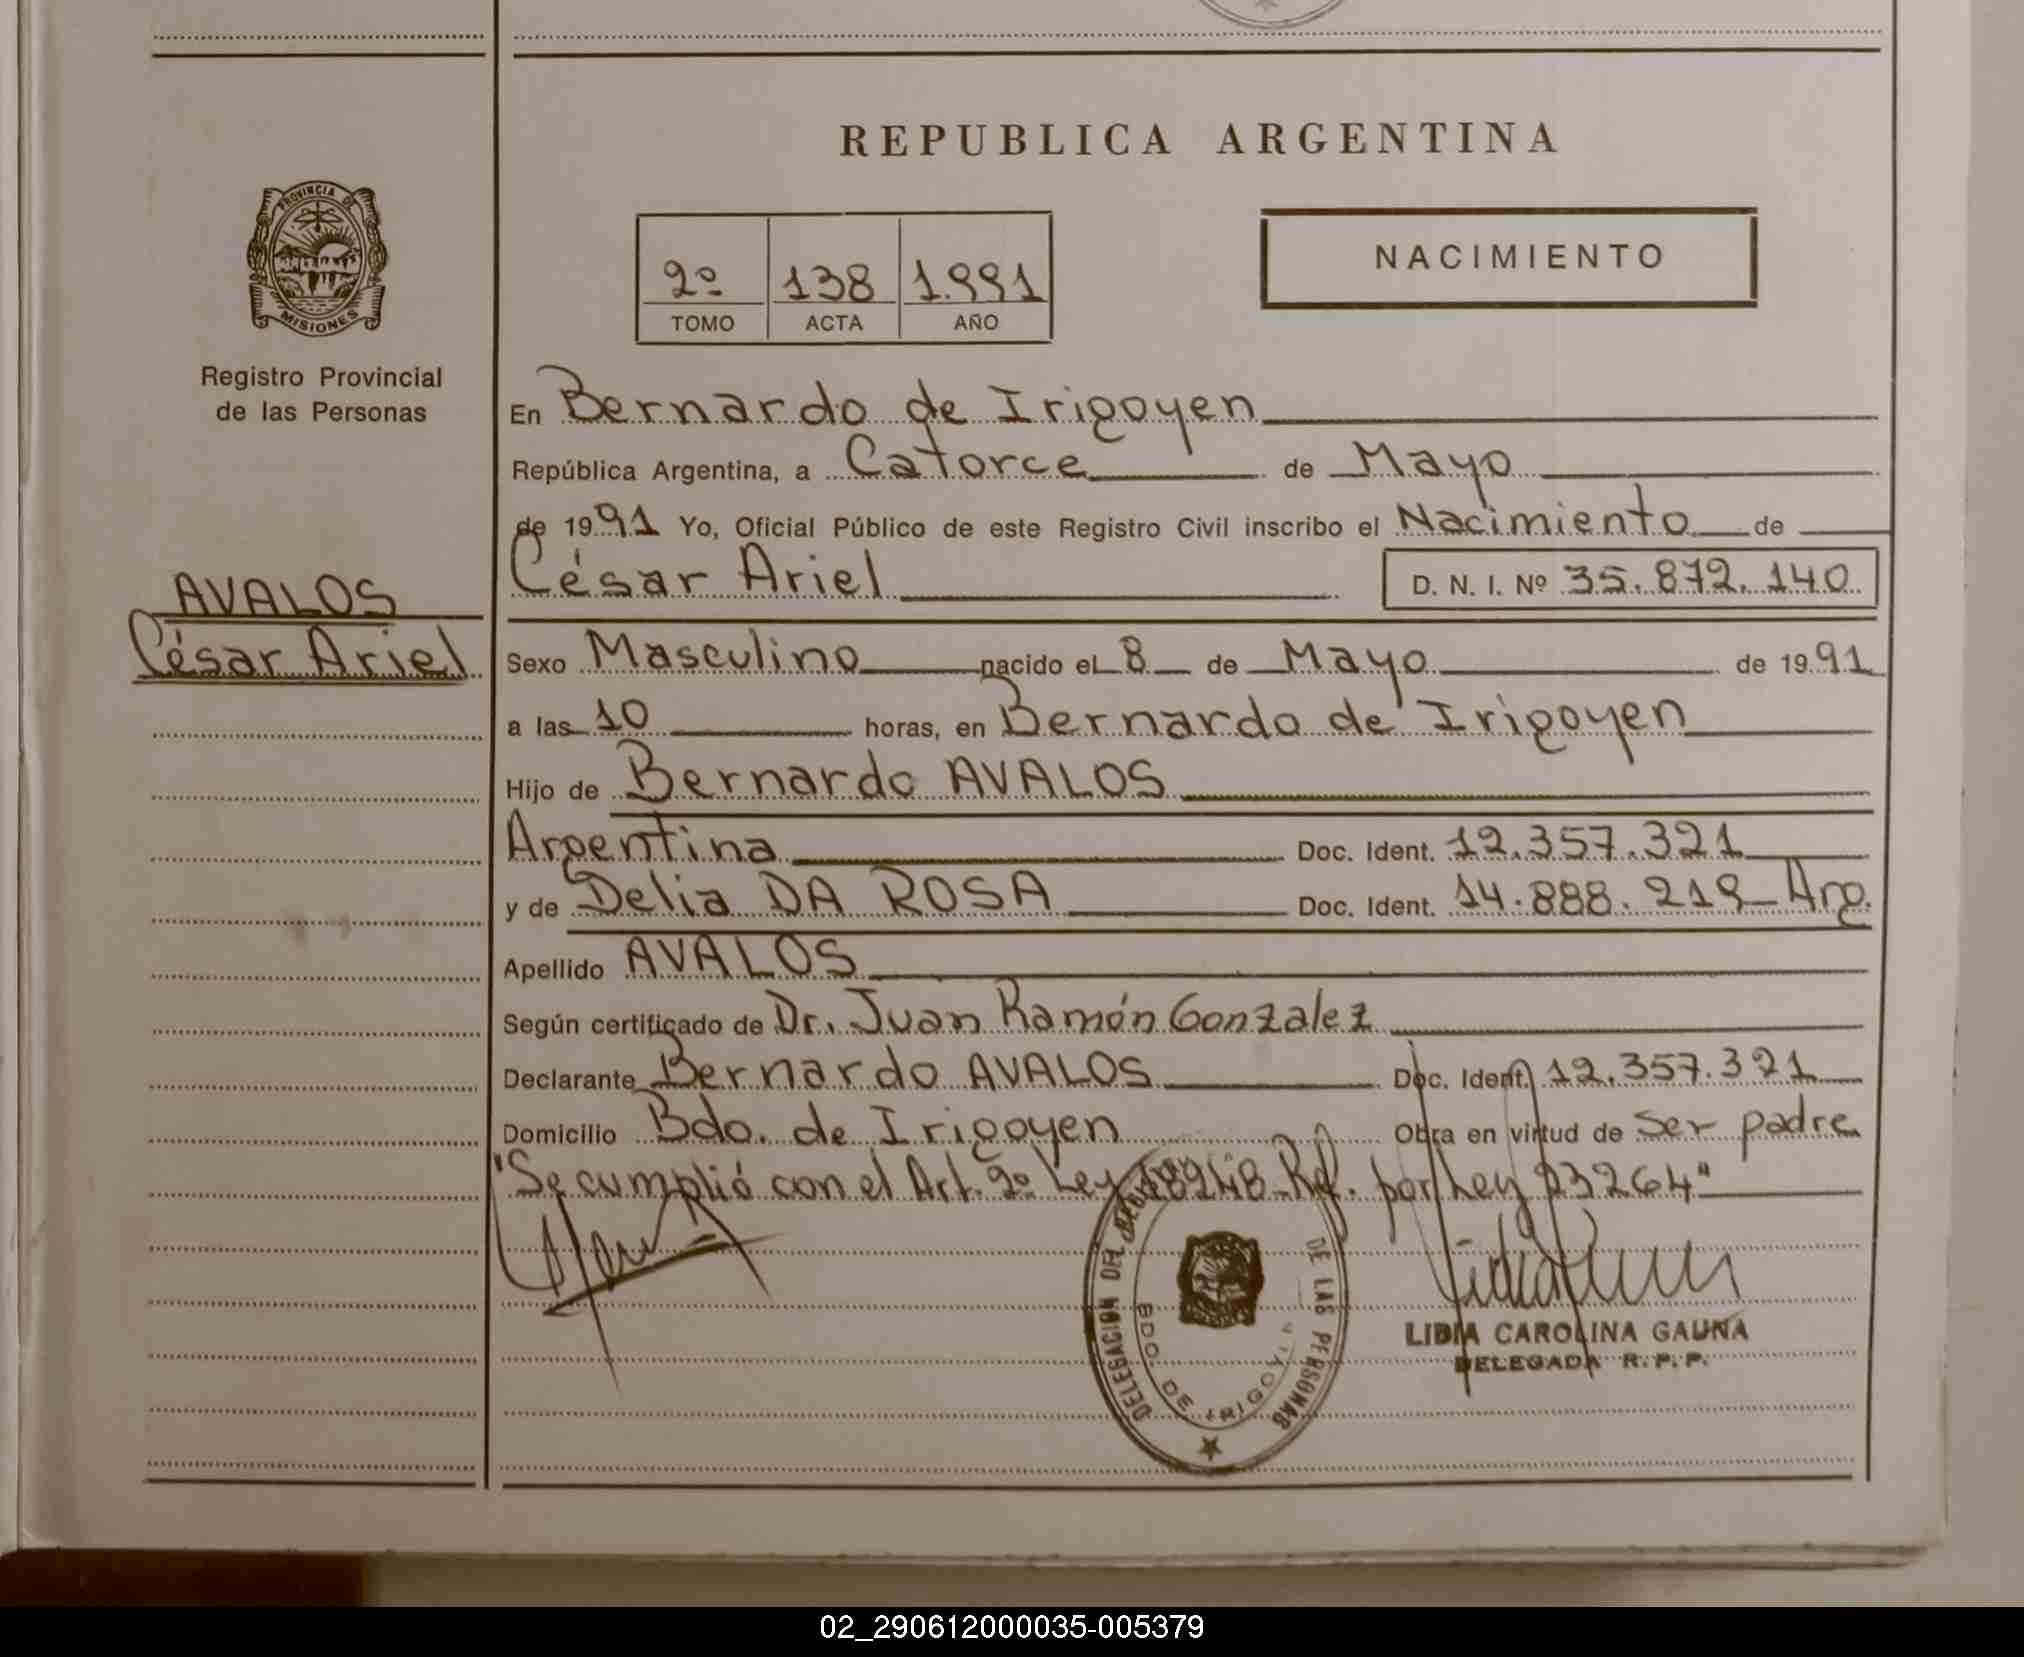 REPUBLICA ARGENTINA
PROVINCIA DE
MISIONES
Registro Provincial
de las Personas
2º 138 1.991
TOMO ACTA AÑO
NACIMIENTO
En Bernardo de Irigoyen
República Argentina, a Catorce de Mayo
de 1991 Yo, Oficial Público de este Registro Civil inscribo el Nacimiento de
César Ariel D. N. I. Nº 35.872.140
AVALOS
César Ariel
Sexo Masculino nacido el 8 de Mayo de 1991
a las 10 horas, en Bernardo de Irigoyen
Hijo de Bernardo AVALOS
Argentina Doc. Ident. 12.357.321
y de Delia DA ROSA Doc. Ident. 14.888.219 Arg.
Apellido AVALOS
Según certificado de Dr. Juan Ramón Gonzalez
Declarante Bernardo AVALOS Doc. Ident. 12.357.321
Domicilio Bdo. de Irigoyen Obra en virtud de ser padre
"Se cumplió con el Art. 2º Ley 18248 Ref. por Ley 23264"
DELEGACION DEL DE LAS PERSONAS
BDO. DE IRIGOYEN
LIDIA CAROLINA GAUNA
DELEGADA R. P. P.
02_290612000035-005379